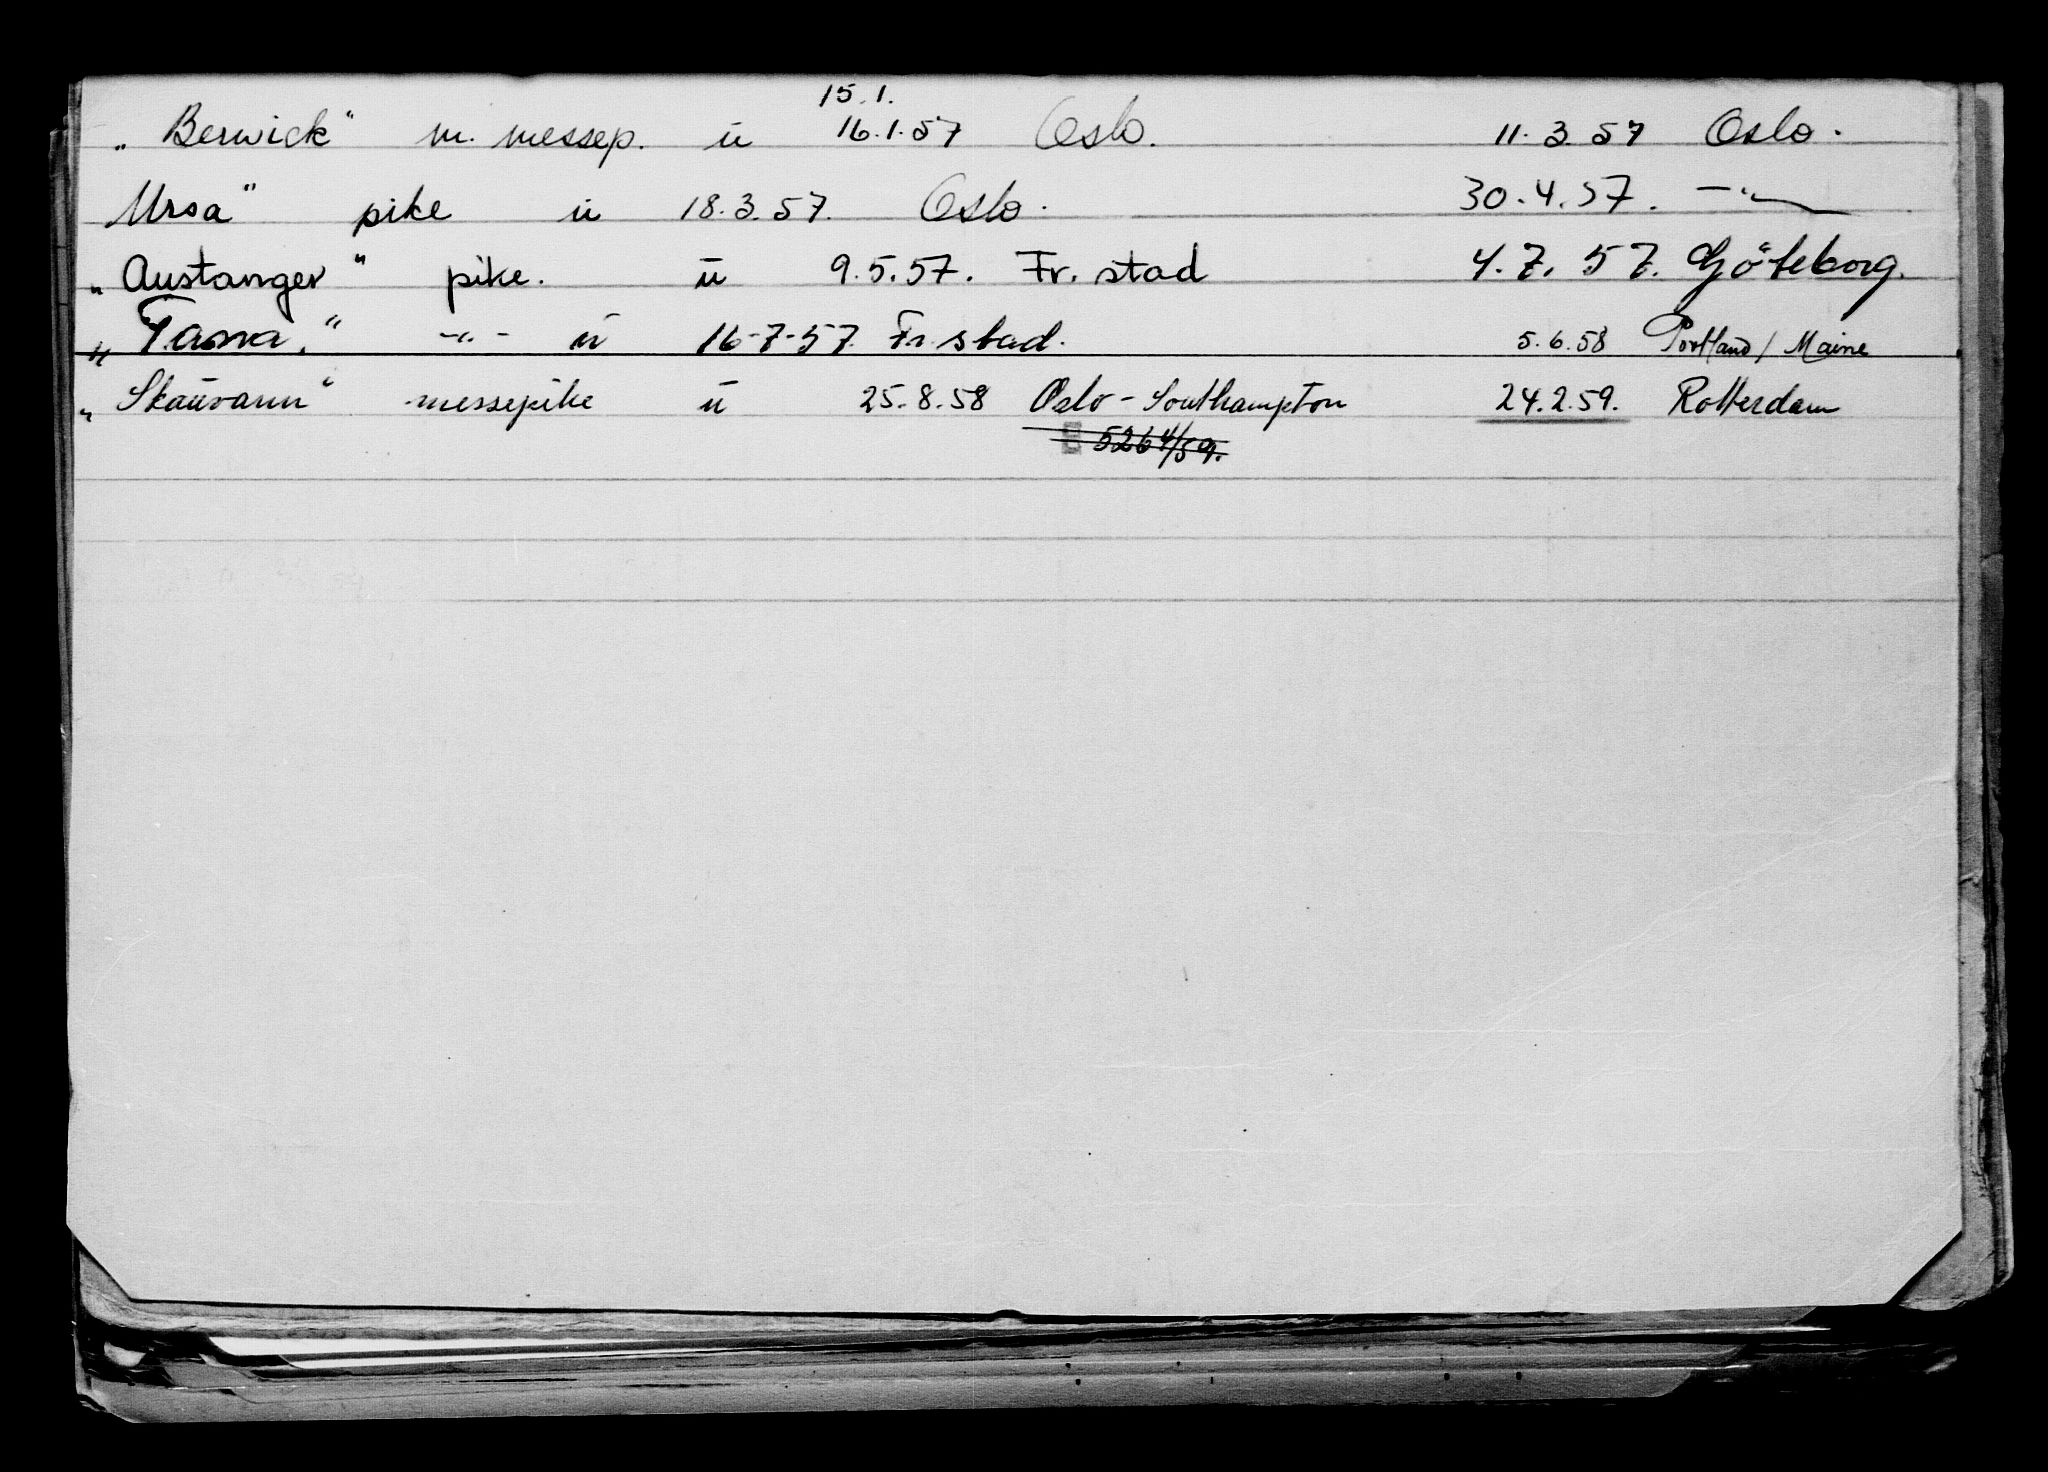 15.1.
„ Berwick" m. messep. u 16.1.57 Oslo. 11.3.57 Oslo.
Ursa" pike u 18.3.57. Oslo. 30.4.57. —"—
„ Austanger" pike. u 9.5.57. Fr. stad 4.7.57. Göteborg.
„ Tasna." -"- u 16-7-57. Fr. stad. 5.6.58 Portland / Maine
„ Skauvann" messepike u 25.8.58 Oslo - Southampton 24.2.59. Rotterdam
5264/59.